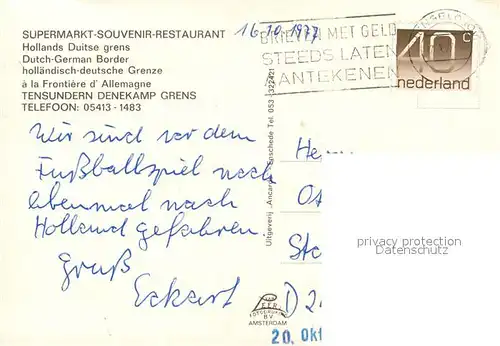 SUPERMARKT-SOUVENIR-RESTAURANT
Hollands Duitse grens
Dutch-German Border
holländisch-deutsche Grenze
à la Frontière d' Allemagne
TENSUNDERN DENEKAMP GRENS
TELEFOON: 05413 - 1483
16.10.1977
BRIEVEN MET GELD
STEEDS LATEN
AANTEKENEN
40 c
nederland
Wir sind vor dem
Fußballspiel noch
ebenmal nach
Holland gefahren.
Gruß
Eckart
Enschede Tel. 053 - 322421
He
Ste
D 2
privacy protection
Datenschutz
B.V.
AMSTERDAM
20. Okt